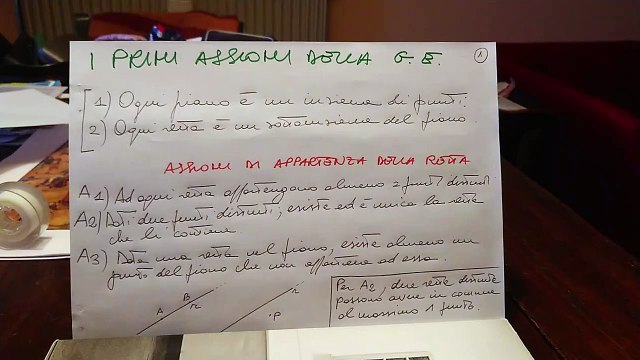 I PRIMI ASSIOMI DELLA G. E. 1
1) Ogni piano è un insieme di punti.
2) Ogni retta è un sottoinsieme del piano.
ASSIOMI DI APPARTENENZA DELLA RETTA
A1) Ad ogni retta appartengono almeno 2 punti distinti
A2) Dati due punti distinti, esiste ed è unica la retta
che li contiene.
A3) Data una retta nel piano, esiste almeno un
punto del piano che non appartiene ad essa.
A B r
r
P
Per A2, due rette distinte
possono avere in comune
al massimo 1 punto.